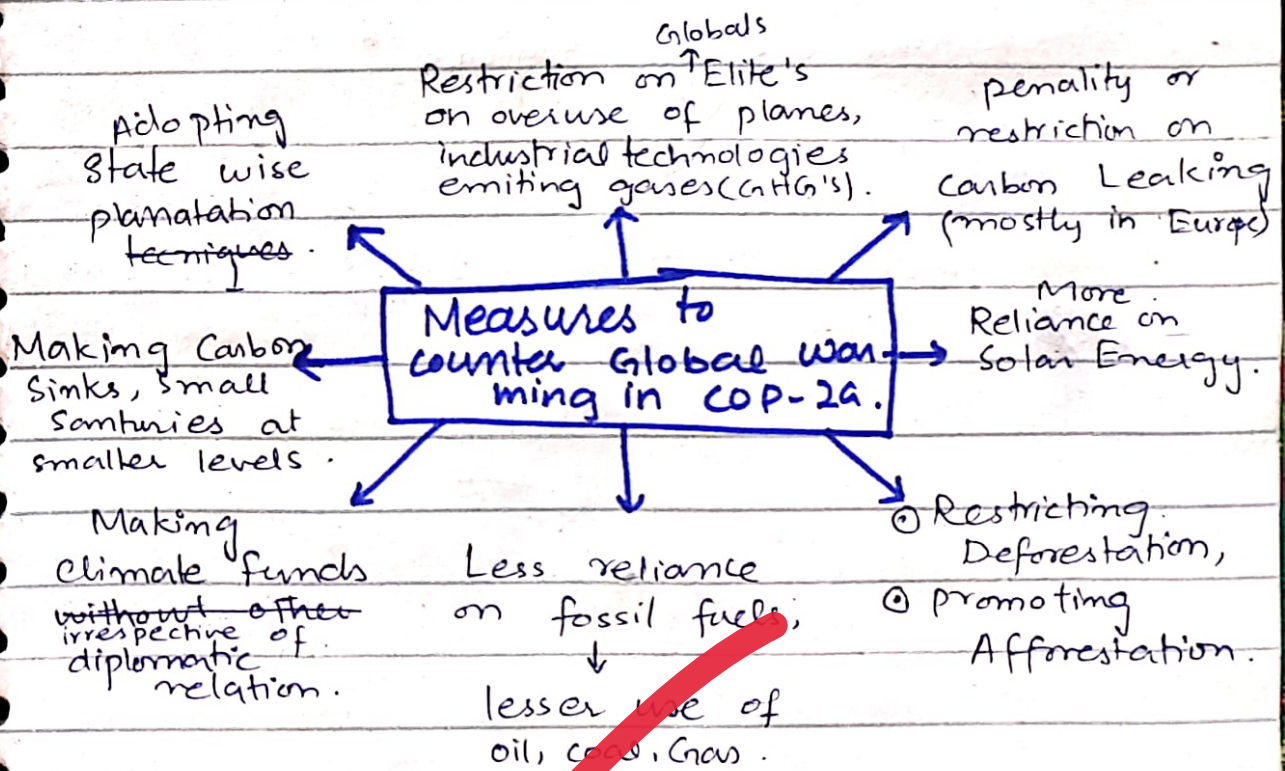 Measures to
counter Global war-
ming in COP-29.
Globals
Restriction on ↑ Elite's
on overuse of planes,
industrial technologies
emiting gases (GHG's).
penality or
restriction on
Carbon Leaking
(mostly in Europe)
More
Reliance on
Solar Energy.
⊙ Restricting
Deforestation,
⊙ promoting
Afforestation.
Less reliance
on fossil fuels;
↓
lesser use of
oil, coal, Gas.
Making
climate funds
without other
irrespective of
diplomatic
relation.
Making Carbon
Sinks, small
at
smaller levels.
Adopting
State wise
planatation
tecniques.